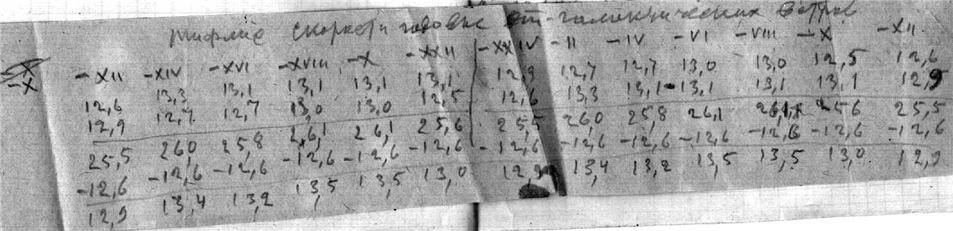 скорости годовые от галактических ветров
-X -XII -XIV -XVI -XVIII -X -XXII -XXIV -II -IV -VI -VIII -X -XII
12,6 13,3 13,1 13,1 13,1 13,1 12,9 12,7 12,7 13,0 13,0 12,5 12,6
12,9 12,7 12,7 13,0 13,0 12,5 12,6 13,3 13,1 -13,1 13,1 13,1 12,9
25,5 260 25,8 26,1 26,1 25,6 25,5 260 25,8 26,1 26,1 256 25,5
-12,6 -12,6 -12,6 -12,6 -12,6 -12,6 -12,6 -12,6 -12,6 -12,6 -12,6 -12,6 -12,6
12,9 13,4 13,2 13,5 13,5 13,0 12,9 13,4 13,2 13,5 13,5 13,0 12,9